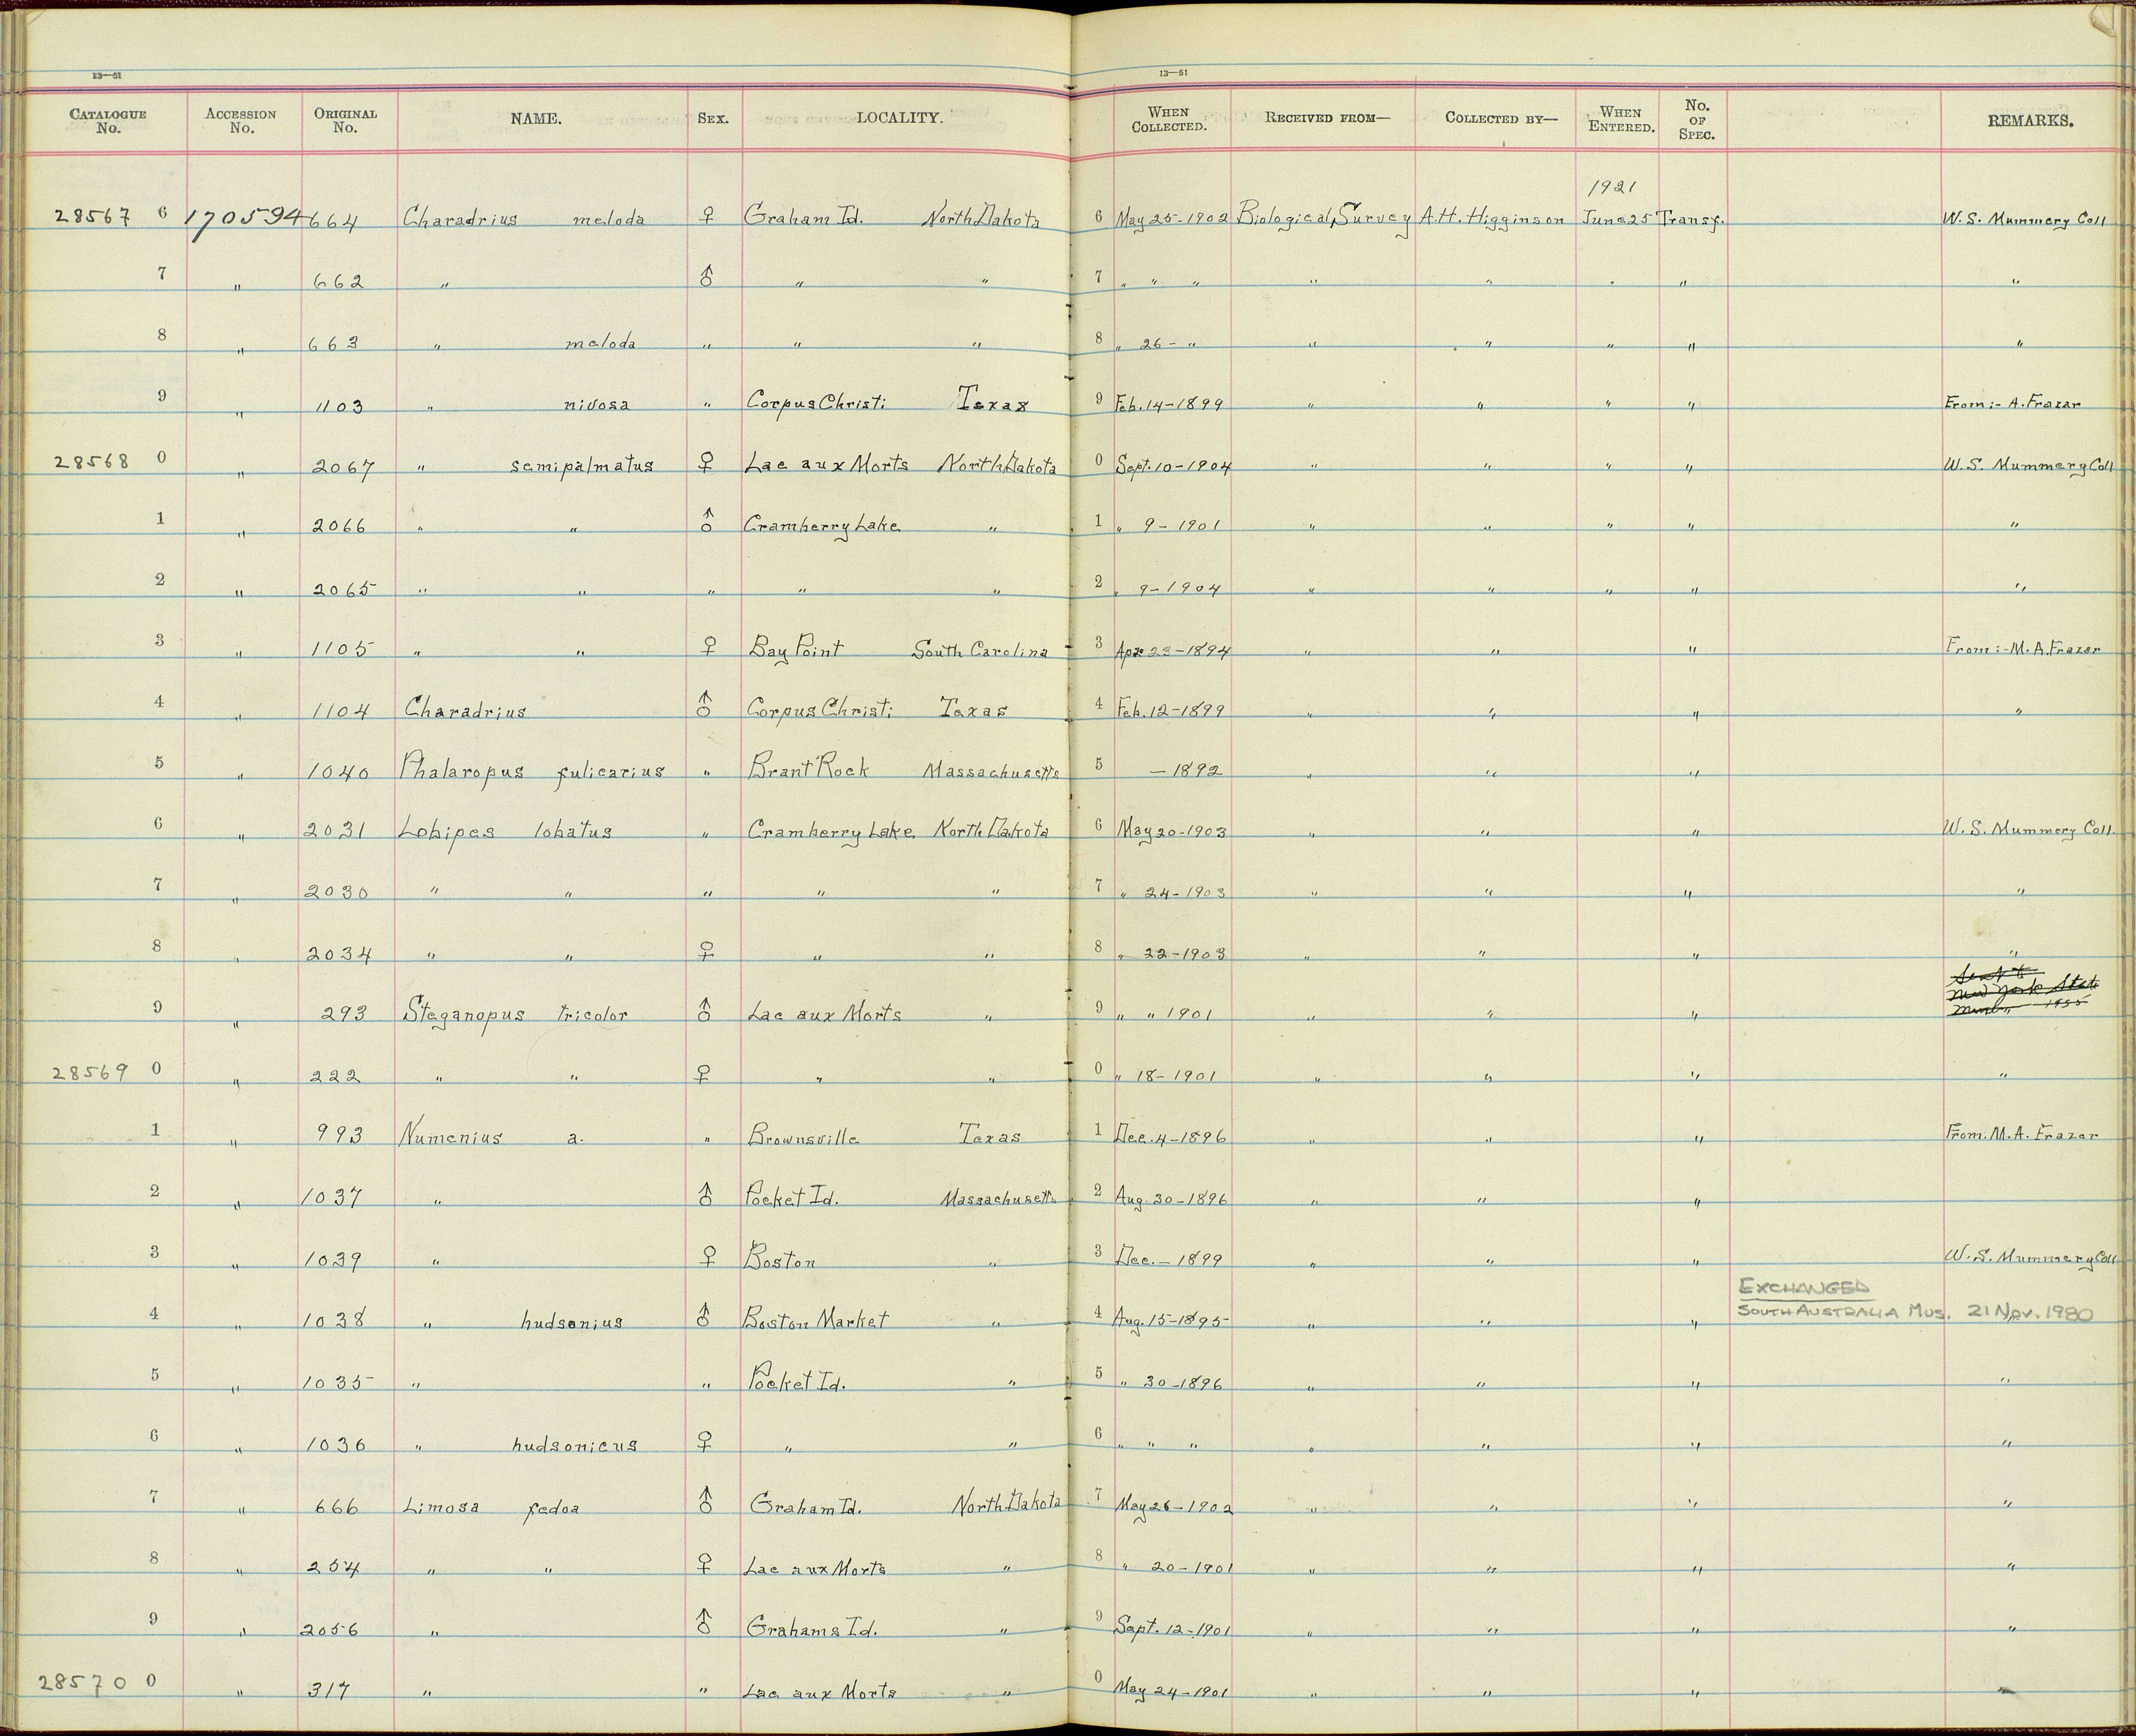 13—51 13—51
CATALOGUE No. ACCESSION No. ORIGINAL No. NAME. SEX. LOCALITY. WHEN COLLECTED. RECEIVED FROM— COLLECTED BY— WHEN ENTERED. No. OF SPEC. REMARKS.
1921
28567 6 170594 664 Charadrius meloda ♀ Graham Id. North Dakota 6 May 25-1902 Biological Survey A.H. Higginson June 25 Transf. W. S. Mummery Coll
7 " 662 " ♂ " " 7 " " " " " " " "
8 " 663 " meloda " " " 8 " 26- " " " " " "
9 " 1103 " nivosa " Corpus Christi Texas 9 Feb. 14-1899 " " " " From:- A. Frazar
28568 0 " 2067 " semipalmatus ♀ Lac aux Morts North Dakota 0 Sept. 10-1904 " " " " W. S. Mummery Coll
1 " 2066 " " ♂ Cramberry Lake " 1 " 9-1901 " " " " "
2 " 2065 " " " " " 2 " 9-1904 " " " " "
3 " 1105 " " ♀ Bay Point South Carolina 3 Apr 23-1894 " " " From:-M. A. Frazer
4 " 1104 Charadrius ♂ Corpus Christi Texas 4 Feb. 12-1899 " " " "
5 " 1040 Phalaropus fulicarius " Brant Rock Massachusetts 5 -1892 " " "
6 " 2031 Lobipes lobatus " Cramberry Lake North Dakota 6 May 20-1903 " " " W. S. Mummery Coll.
7 " 2030 " " " " " 7 " 24-1903 " " " "
8 " 2034 " " ♀ " " 8 " 22-1903 " " " "
9 " 293 Steganopus tricolor ♂ Lac aux Morts " 9 " " 1901 " " " Sent to
New York State
1955
28569 0 " 222 " " ♀ " " 0 " 18-1901 " " " "
1 " 993 Numenius a. " Brownsville Texas 1 Dec. 4-1896 " " " From. M. A. Frazer
2 " 1037 " ♂ Pocket Id. Massachusetts 2 Aug. 30-1896 " " "
3 " 1039 " ♀ Boston " 3 Dec.-1899 " " " W. S. Mummery Coll
EXCHANGED
4 " 1038 " hudsonius ♂ Boston Market " 4 Aug. 15-1895 " " " SOUTH AUSTRALIA MUS. 21 Nov. 1980
5 " 1035 " " Pocket Id. " 5 " 30-1896 " " " "
6 " 1036 " hudsonicus ♀ " " 6 " " " " " " "
7 " 666 Limosa fedoa ♂ Graham Id. North Dakota 7 May 26-1902 " " " "
8 " 254 " " ♀ Lac aux Morts " 8 " 20-1901 " " " "
9 " 2056 " ♂ Grahams Id. " 9 Sept. 12-1901 " " " "
28570 0 " 317 " " Lac aux Morts " 0 May 24-1901 " " " "